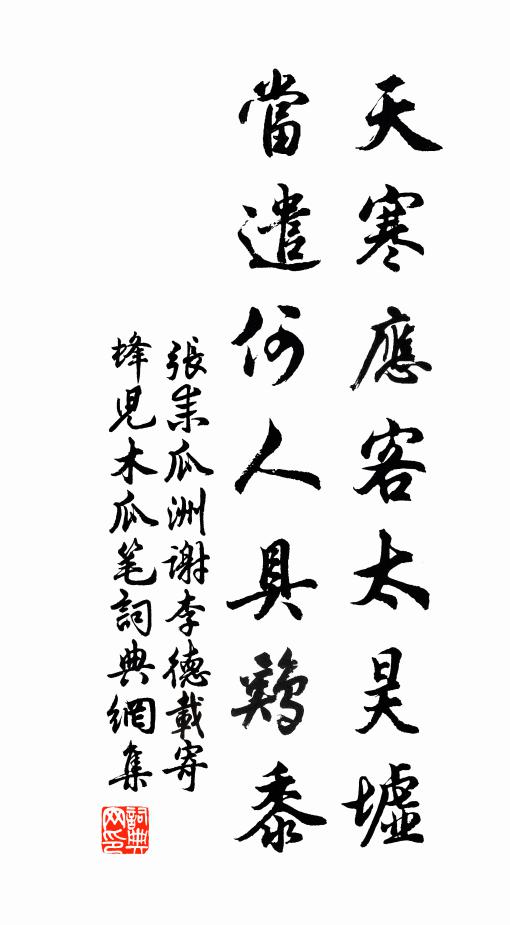 天寒應客太昊墟
當遣何人具鷄黍
張耒瓜洲謝李德載寄
蜂兒木瓜笔詞典網集
詞典
网印